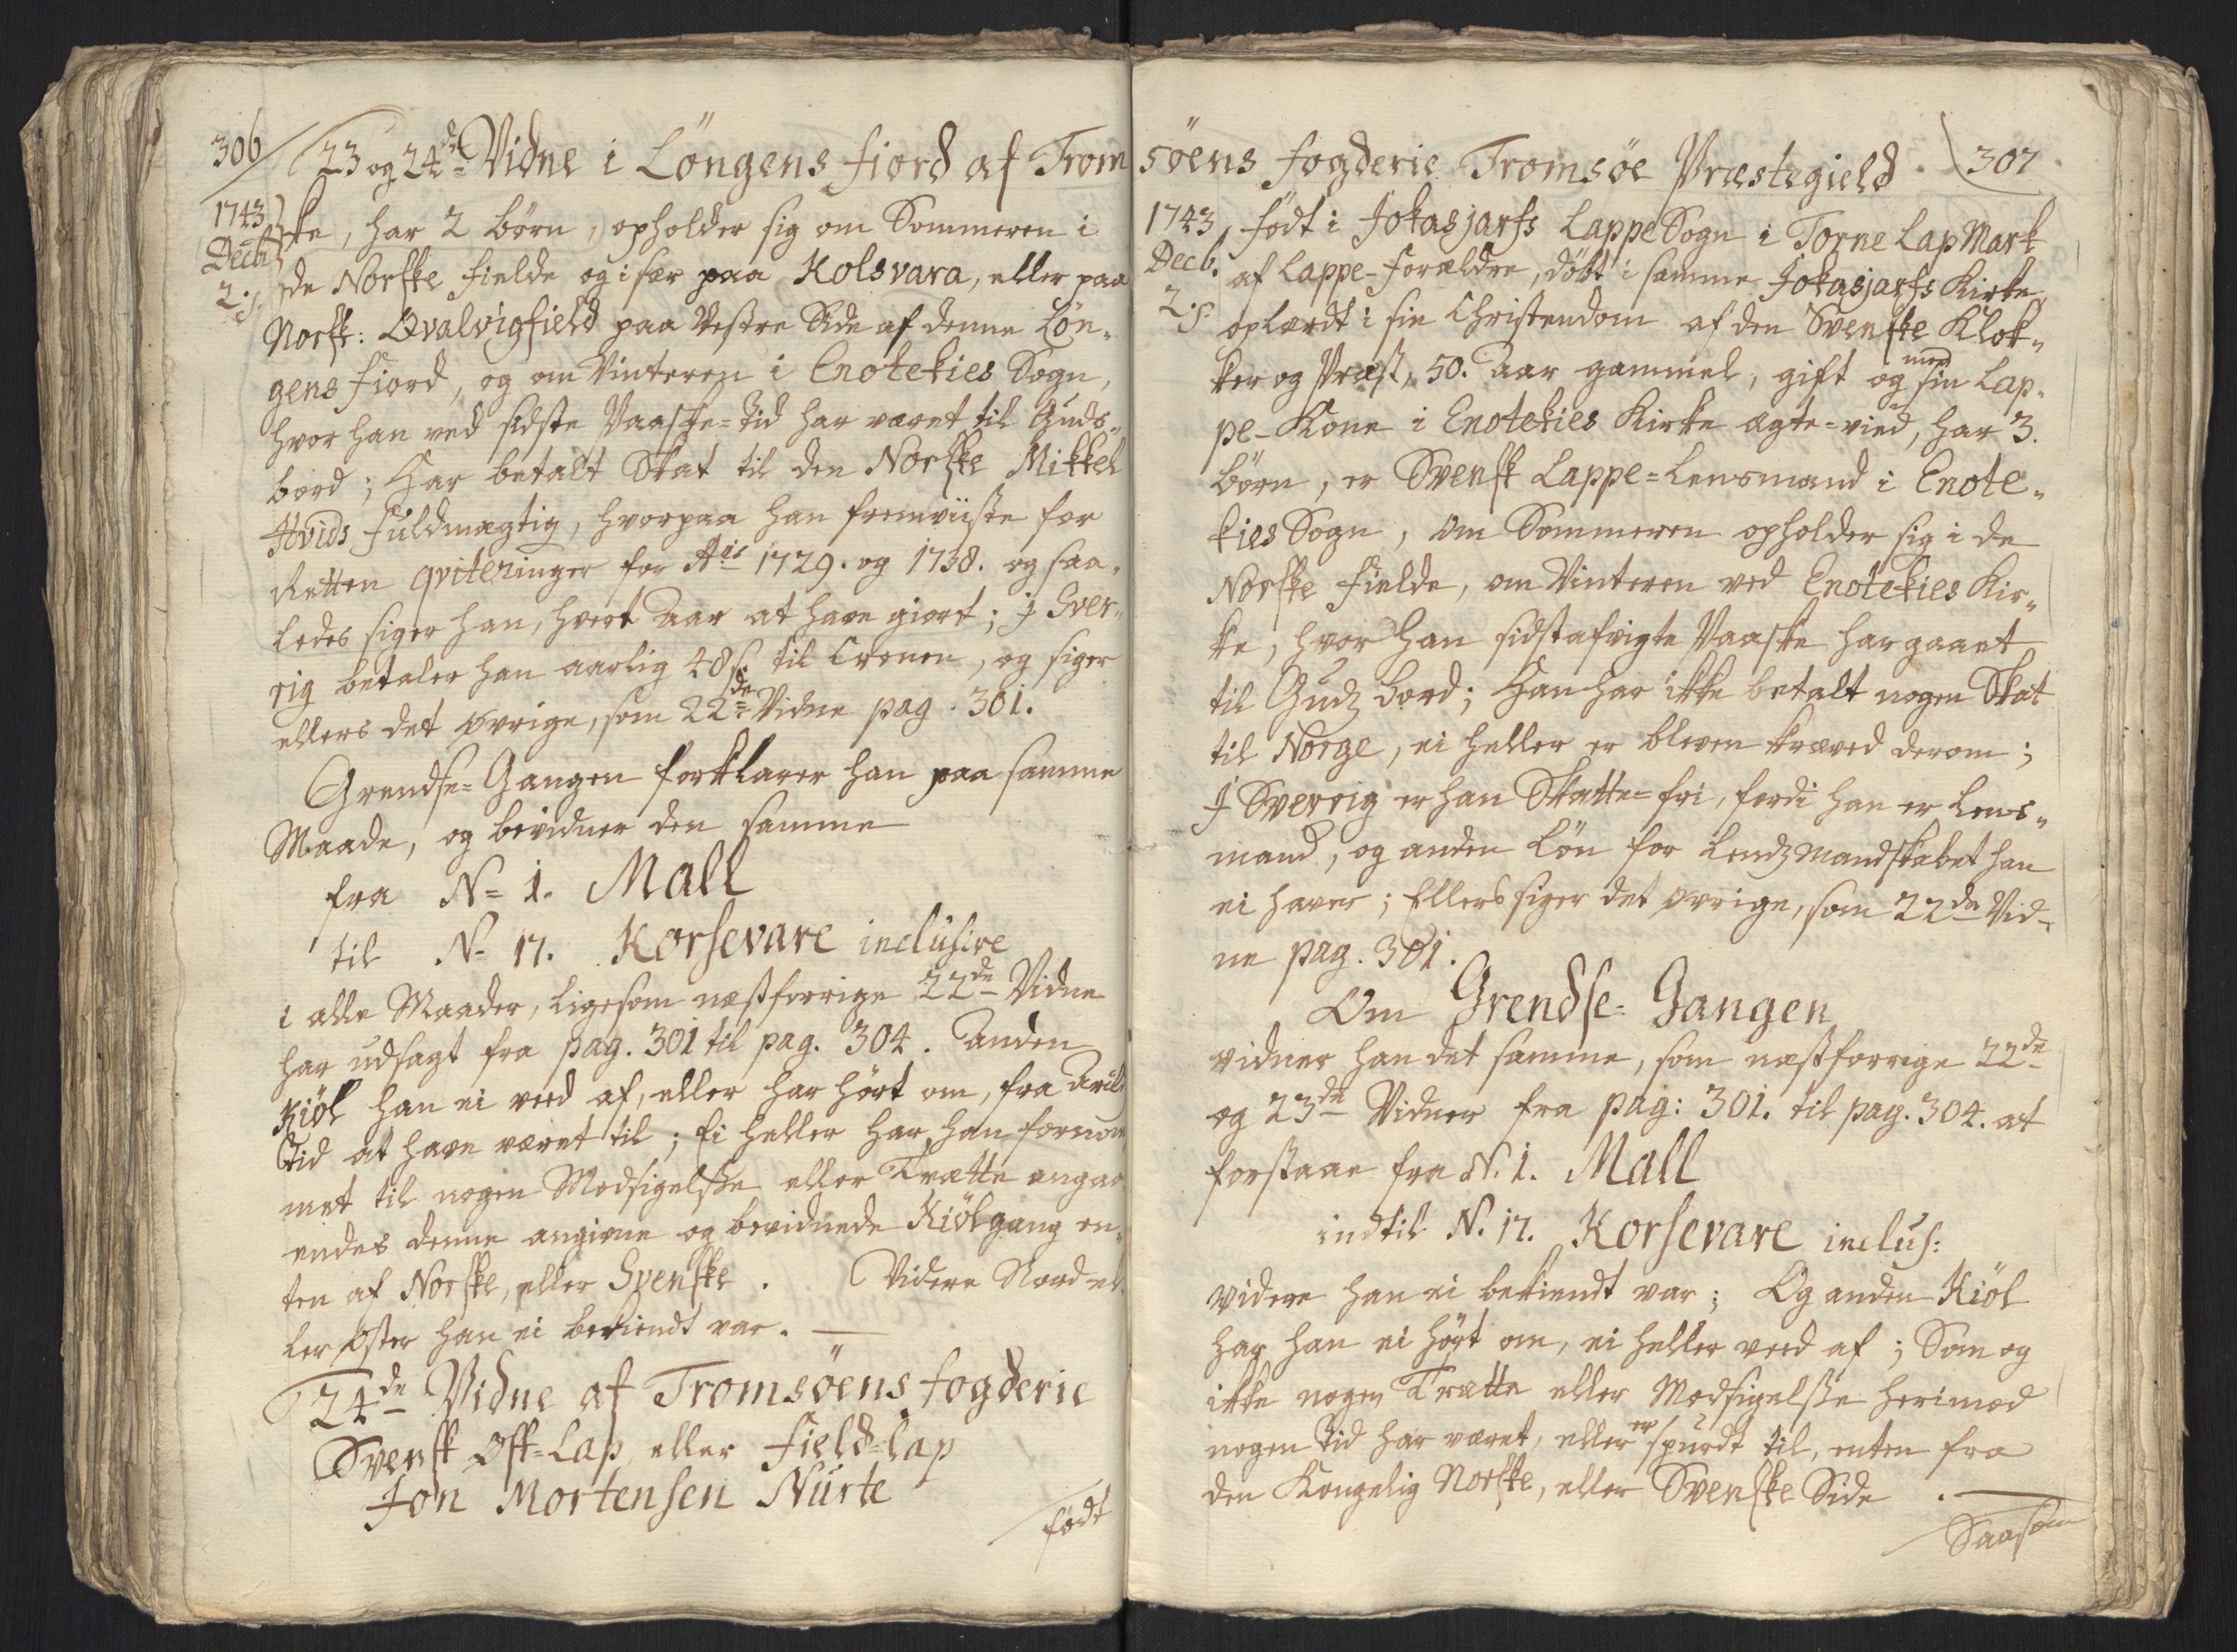 306
23 og 24de Vidne i Löngens fiord af Trom
1743
Decb.
2. s.
ske, har 2 börn, opholder sig om Sommeren i
de Norske fielde og i sær paa Kolsvara, eller paa
Norsk: Qvalvigfield paa Vestre Side af denne Lön„
gens fiord, og om Vinteren i Enotekies Sogn,
hvor han ved sidste Paaske=tid har været til Guds„
bord; Har betalt Skat til den Norske Mikkel
Hvids fuldmægtig, hvorpaa han fremviiste for
Retten qviteringer for Ais 1729. og 1738. og saa„
ledes siger han, hvert Aar at have giort; J Sver„
rig betaler han aarlig 48 s. til Cronen, og siger
ellers det øvrige, som 22de Vidne pag. 301.
Grendse=Gangen forklarer han paa samme
Maade, og bevidner den samme
fra N= 1. Mall
til N= 17. Korsevare inclusive
i alle Maader, ligesom næstforrige 22de Vidne
har udsagt fra pag. 301 til pag. 304. Anden
Kiøl han ei veed af, eller har hört om, fra Arilds
Tid at have været til; Ei heller har han fornom„
met til nogen Modsigelse eller Trætte angaa„
endes denne angivne og bevidnede Kiölgang en„
ten af Norske, eller Svenske. Videre Nord el„
ler Øster han ei bekiendt var. —
24de Vidne af Tromsöens fogderie
Svensk Øst=Lap, eller field=lap
Jon Mortensen Nurte
födt
söens fogderie Tromsöe Præstegield.
307
1743
Decb.
2. s.
födt i Jokasjarfs LappeSogn i Torne LapMark
af Lappe=Forældre, döbt i samme Jokasjarfs Kirke,
oplærdt i sin Christendom af den Svenske Klok„
ker og Præst, 50. Aar gammel, gift og med sin Lap„
pe=Kone i Enotekies Kirke ægte=vied, har 3.
börn, er Svensk Lappe=Lensmand i Enote„
kies Sogn, om Sommeren opholder sig i de
Norske fielde, om Vinteren ved Enotekies Kir„
ke, hvor han sidstafvigte Paaske har gaaet
til Gudz bord; Han har ikke betalt nogen Skat
til Norge, ei heller er bleven kræved derom;
J Sverrig er han Skatte=fri, fordi han er Lens„
mand, og anden Lön for Lendzmandskabet han
ei haver; Ellers siger det øvrige, som 22de Vid„
ne pag. 301.
Om Grendse=Gangen
vidner han det samme, som næstforrige 22de
og 23de Vidner fra pag: 301. til pag. 304. at
forstaae fra N. 1. Mall
indtil N. 17. Korsevare inclus:
videre han ei bekiendt var; Og anden Kiöl
har han ei hört om, ei heller veed af; Som og
ikke nogen Trætte eller Modsigelse herimod
nogen Tid har været, eller er spurdt til, enten fra
den Kongelig Norske, eller Svenske Side. —
Saasom